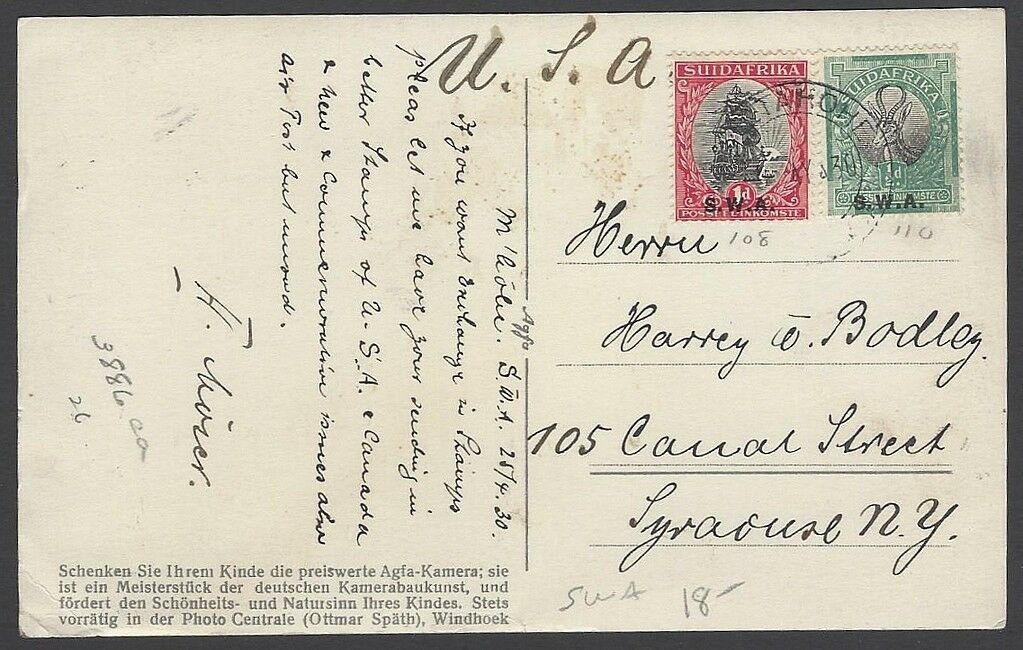 U. S. A
SUIDAFRIKA
1d
S.W.A.
POSSEEL INKOMSTE
SUIDAFRIKA
½d
S.W.A.
POSSEEL INKOMSTE
OKAHO
30
108
110
Herrn
Harrey v. Bodley.
105 Canal Street
Syracuse N.Y.
M'höhe. S.W.A. 25/4.30.
If you want Exchange in Stamps
pleas let me have your sending in
better Stamps of U.S.A. & Canada
& new & Commemorative issues also
air Post but unused.
A.
3886
26
Agfa
Schenken Sie Ihrem Kinde die preiswerte Agfa-Kamera; sie
ist ein Meisterstück der deutschen Kamerabaukunst, und
fördert den Schönheits- und Natursinn Ihres Kindes. Stets
vorrätig in der Photo Centrale (Ottmar Späth), Windhoek
SWA 18-